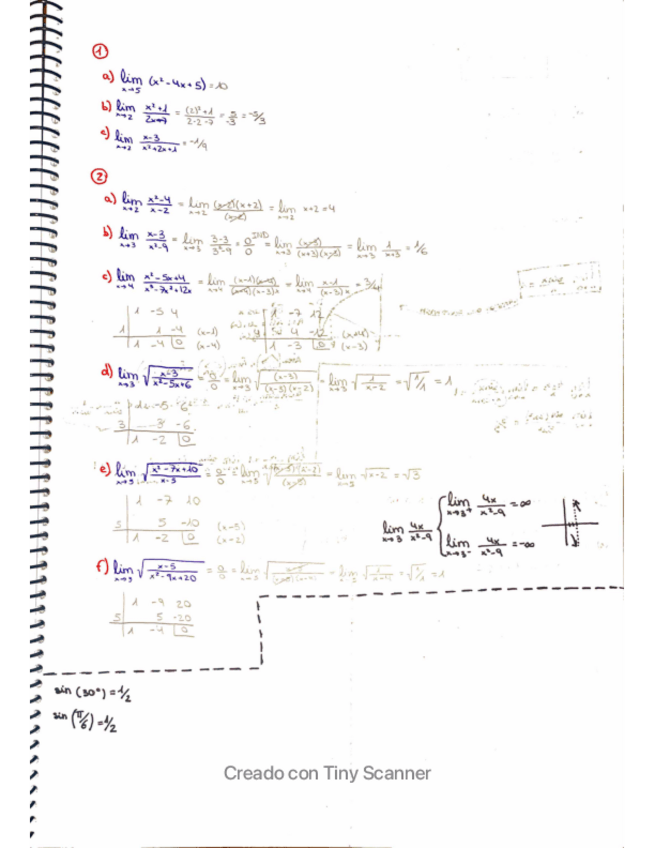 1
a) lim x→5 (x²-4x+5) = 10
b) lim x→2 x²+1/2x-7 = (2)²+1/2·2-7 = 5/-3 = -5/3
c) lim x→2 x-3/x²+2x+1 = -1/9
2
a) lim x→2 x²-4/x-2 = lim x→2 (x-2)(x+2)/(x-2) = lim x→2 x+2 = 4
b) lim x→3 x-3/x²-9 = lim x→3 3-3/3²-9 = 0/0 IND = lim x→3 (x-3)/(x+3)(x-3) = lim x→3 1/x+3 = 1/6
c) lim x→4 x²-5x+4/x³-7x²+12x = lim x→4 (x-1)(x-4)/(x-4)(x-3)x = lim x→4 x-1/(x-3)x = 3/4
1 -5 4
1 -7 12
1 1 -4 (x-1)
4 4 -12 (x-4)
1 -4 0 (x-4)
1 -3 0 (x-3)
d) lim x→3 √x-3/x²-5x+6 = 0/0 = lim x→3 √(x-3)/(x-3)(x-2) = lim x→3 √1/x-2 = √1/1 = 1
-5 6
3 3 -6
1 -2 0
e) lim x→5 √x²-7x+10/x-5 = 0/0 = lim x→5 √(x-5)(x-2)/(x-5) = lim x→5 √x-2 = √3
1 -7 10
5 5 -10 (x-5)
1 -2 0 (x-2)
lim x→3 4x/x²-9 { lim x→3⁺ 4x/x²-9 = ∞
lim x→3⁻ 4x/x²-9 = -∞
f) lim x→5 √x-5/x²-9x+20 = 0/0 = lim x→5 = lim x→5 = √1/1 = 1
1 -9 20
5 5 -20
1 -4 0
sin (30°) = 1/2
sin (π/6) = 1/2
Creado con Tiny Scanner